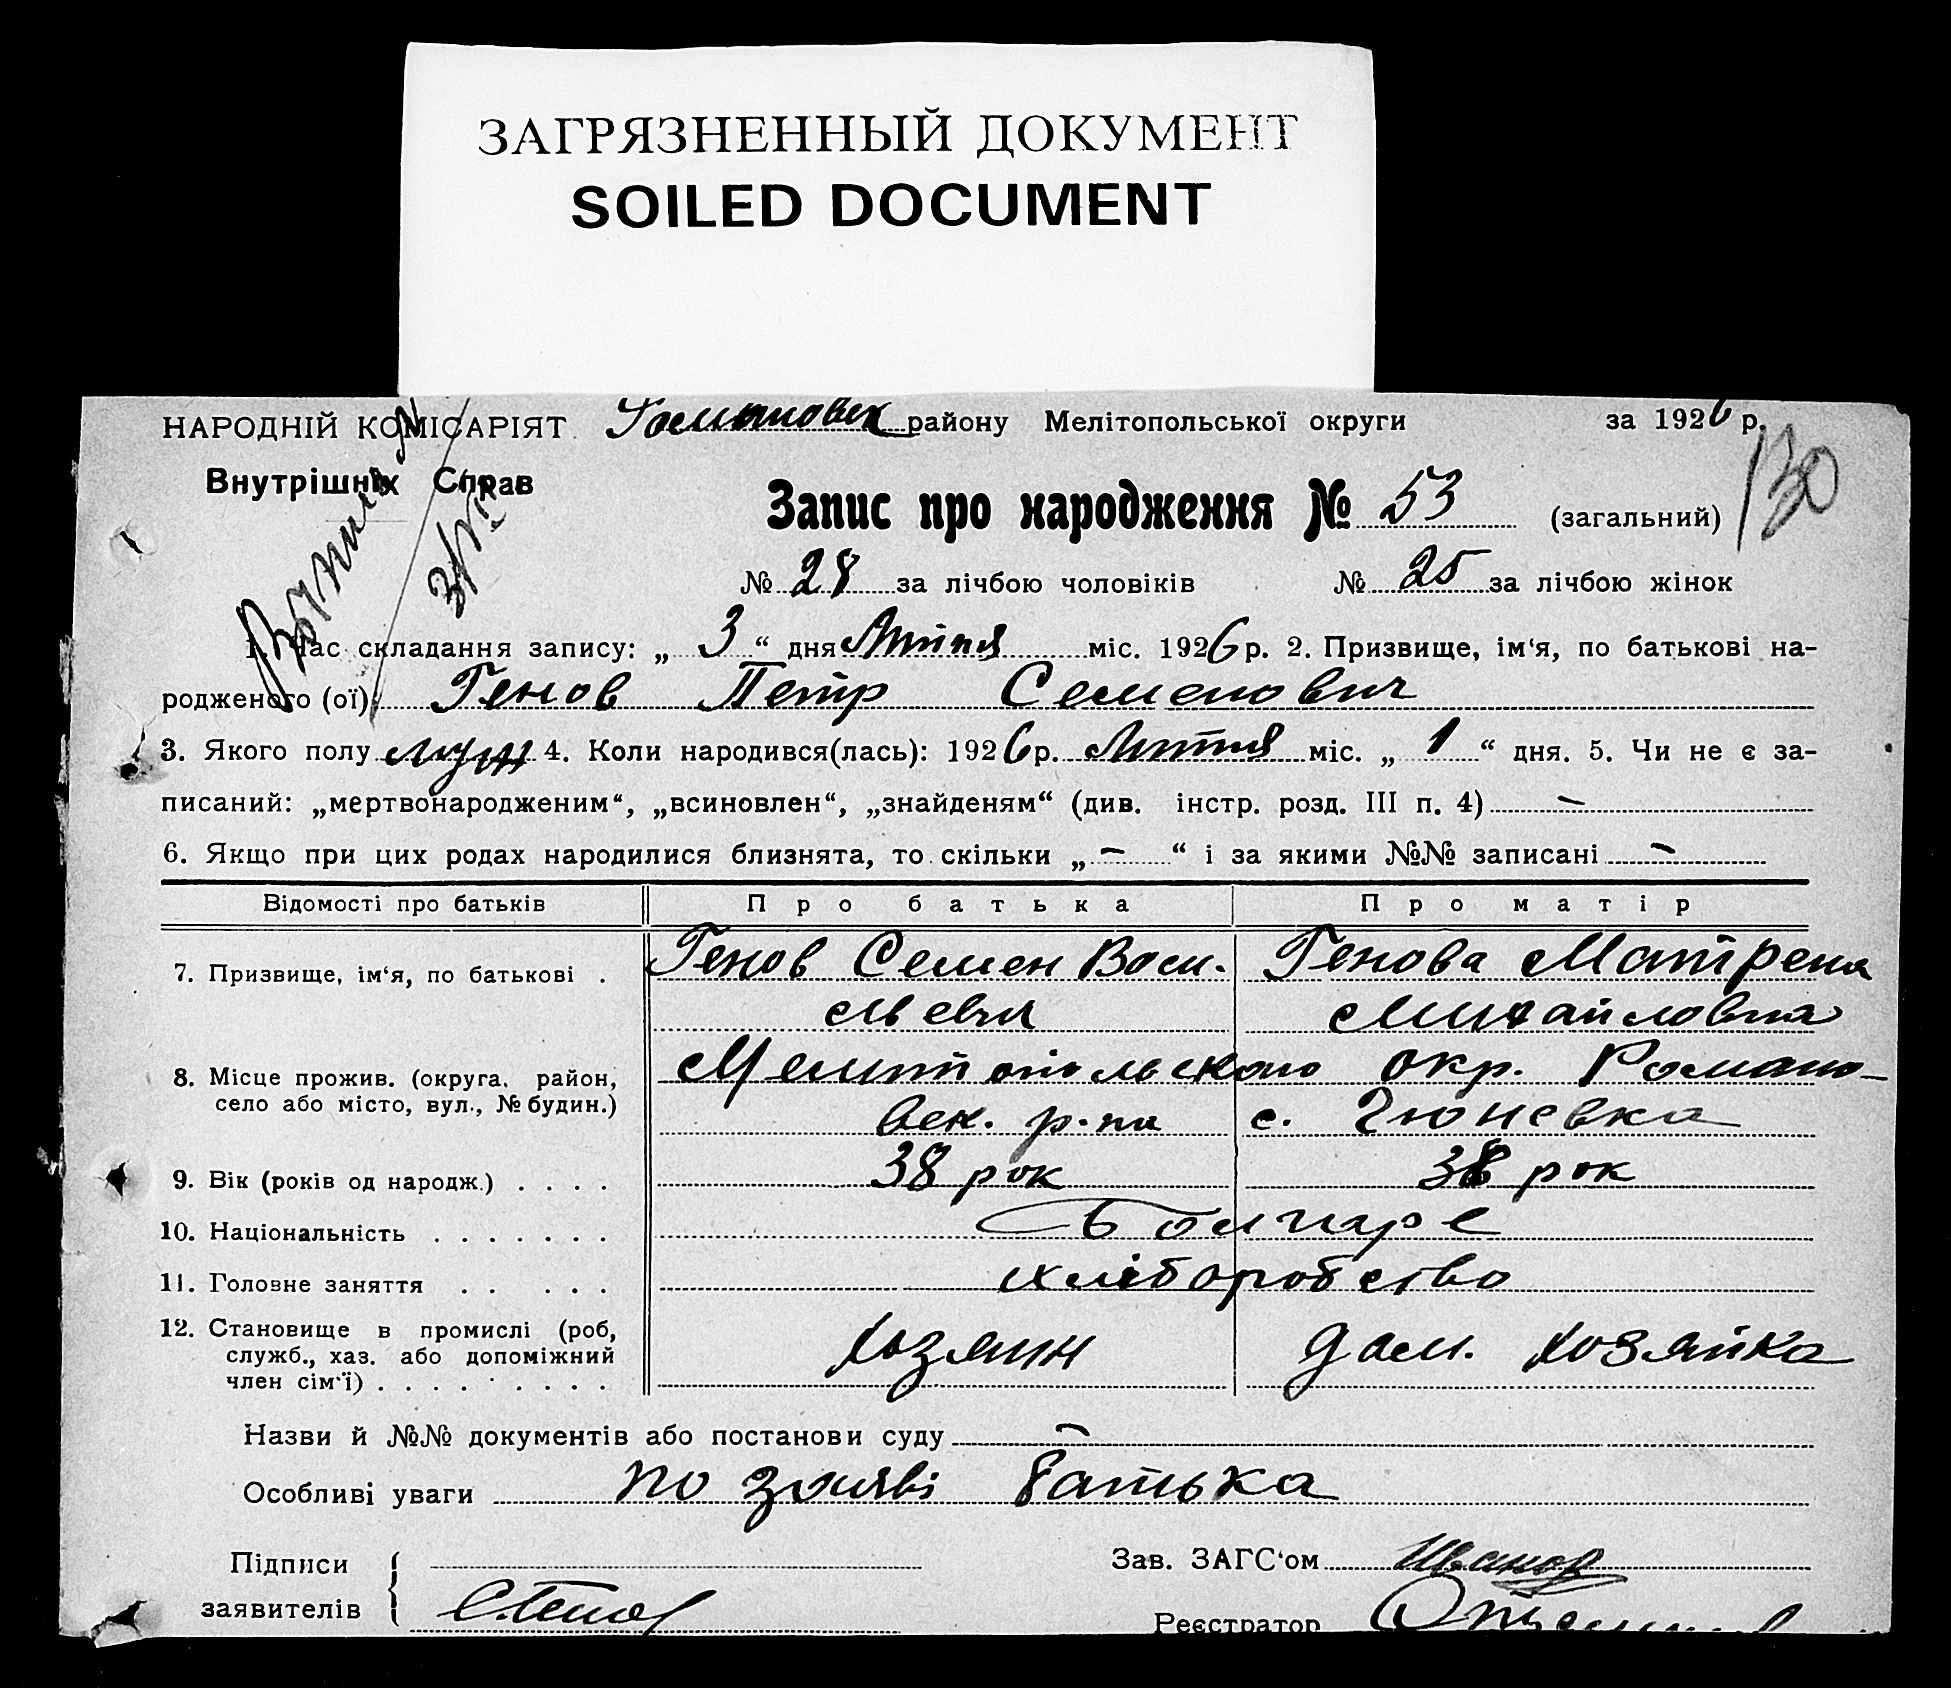 ЗАГРЯЗНЕННЫЙ ДОКУМЕНТ
SOILED DOCUMENT
НАРОДНІЙ КОМІСАРІЯТ району Мелітопольської округи за 1926 р.
130
Внутрішніх Справ
Запис про народження № 53 (загальний)
№ 28 за лічбою чоловіків № 25 за лічбою жінок
1. Час складання запису: „ 3 “ дня Липня міс. 1926 р. 2. Призвище, ім‘я, по батькові на-
родженого (ої): Генов Петр Семенович
3. Якого полу муж 4. Коли народився(лась): 1926 р. Липня міс. „ 1 “ дня. 5. Чи не є за-
писаний: „мертвонародженим“, „всиновлен“, „знайденям“ (див. інстр. розд. III п. 4) —
6. Якщо при цих родах народилися близнята, то скільки „ — “ і за якими №№ записані —
Відомості про батьків Про батька Про матір
7. Призвище, ім‘я, по батькові . Генов Семен Васи- Генова Матрена
льевич Михайловна
8. Місце прожив. (округа, район, Мелитопольского окр. Романо-
село або місто, вул., № будин.) век. р-на с. Гюневка
9. Вік (років од народж.) . . . . 38 рок 38 рок
10. Національність . . . . . . . Болгаре
11. Головне заняття . . . . . хліборобство
12. Становище в промислі (роб,
служб., хаз. або допоміжний хозяин дом. хозяйка
член сім‘ї) . . . . . . . . .
Назви й №№ документів або постанови суду —
Особливі уваги по заяві батька
Підписи Зав. ЗАГС‘ом Иванов
заявителів С. Генов
Реєстратор